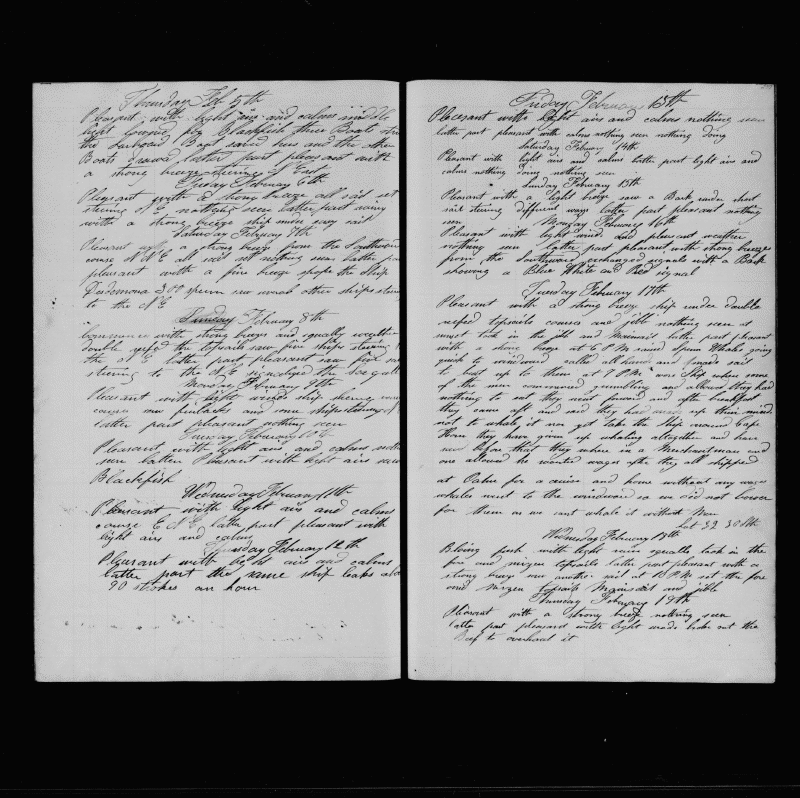 Thursday Feb 5th
Pleasant with light airs and calms middle
light Blackfish three Boats
the Larboard Boat saved hers and the other
Boats latter part pleasant with
a strong breeze
Friday February 6th
Pleasant with a strong breeze all sail set
steering N E nothing seen latter part rainy
with a strong breeze ship under easy sail
Saturday February 7th
Pleasant with a strong breeze from the Southward
course N N E all sail set nothing seen latter part
pleasant with a fine breeze spoke the Ship
Desdemona 300 sperm saw several other ships
to the N E
Sunday February 8th
with strong breeze and squally weather
double reefed the topsails saw five ships steering
the N E latter part pleasant saw five
steering to the N E signalized the Sea gull
Monday February 9th
Pleasant with light winds ship
course saw finbacks and some ships steering
latter part pleasant nothing seen
Tuesday February 10th
Pleasant with light airs and calms nothing
seen latter Pleasant with light airs saw
Blackfish
Wednesday February 11th
Pleasant with light airs and calms
course E N E latter part pleasant with
light airs and calms
Thursday February 12th
Pleasant with light airs and calms
latter part the same ship leaks
90 strokes an hour
Friday February 13th
Pleasant with light airs and calms nothing seen
latter part pleasant with calms nothing seen nothing doing
Saturday February 14th
Pleasant with light airs and calms latter part light airs and
calms nothing doing nothing seen
Sunday February 15th
Pleasant with a light breeze saw a Bark under short
sail steering different ways latter part pleasant nothing
seen Monday February 16th
Pleasant with light wind and pleasant weather
nothing seen latter part pleasant with strong breeze
from the Southward exchanged signals with a Bark
showing a Blue White and Red signal
Tuesday February 17th
Pleasant with a strong breeze ship under double
reefed topsails courses and jibb nothing seen at
sunset took in the jib and Mainsail latter part pleasant
with a strong breeze at 6 P M raised Sperm Whales going
quick to windward called all hands and made sail
to beat up to them at 7 P M wore Ship where some
of the men commenced grumbling and allowed they had
nothing to eat they went forward and after breakfast
they came aft and said they had made up their minds
not to whale it nor yet take the ship around Cape
Horn they have given up whaling altogether and have
said before that they where in a Merchantman and
one allowed he wanted wages after they all shipped
at Value for a cruise and home without any wages
whales went to the windward so we did not lower
for them as we cant whale it without Men
Lat 32 30 Sth
Wednesday February 18th
Blowing fresh with light rain squalls took in the
fore and mizen topsails latter part pleasant with a
strong breeze saw another sail at 1 P M set the fore
and Mizen topsails Mainsail and jibb
Thursday February 19th
Pleasant with a strong breeze nothing seen
latter part pleasant with light winds broke out the
Beef to overhaul it